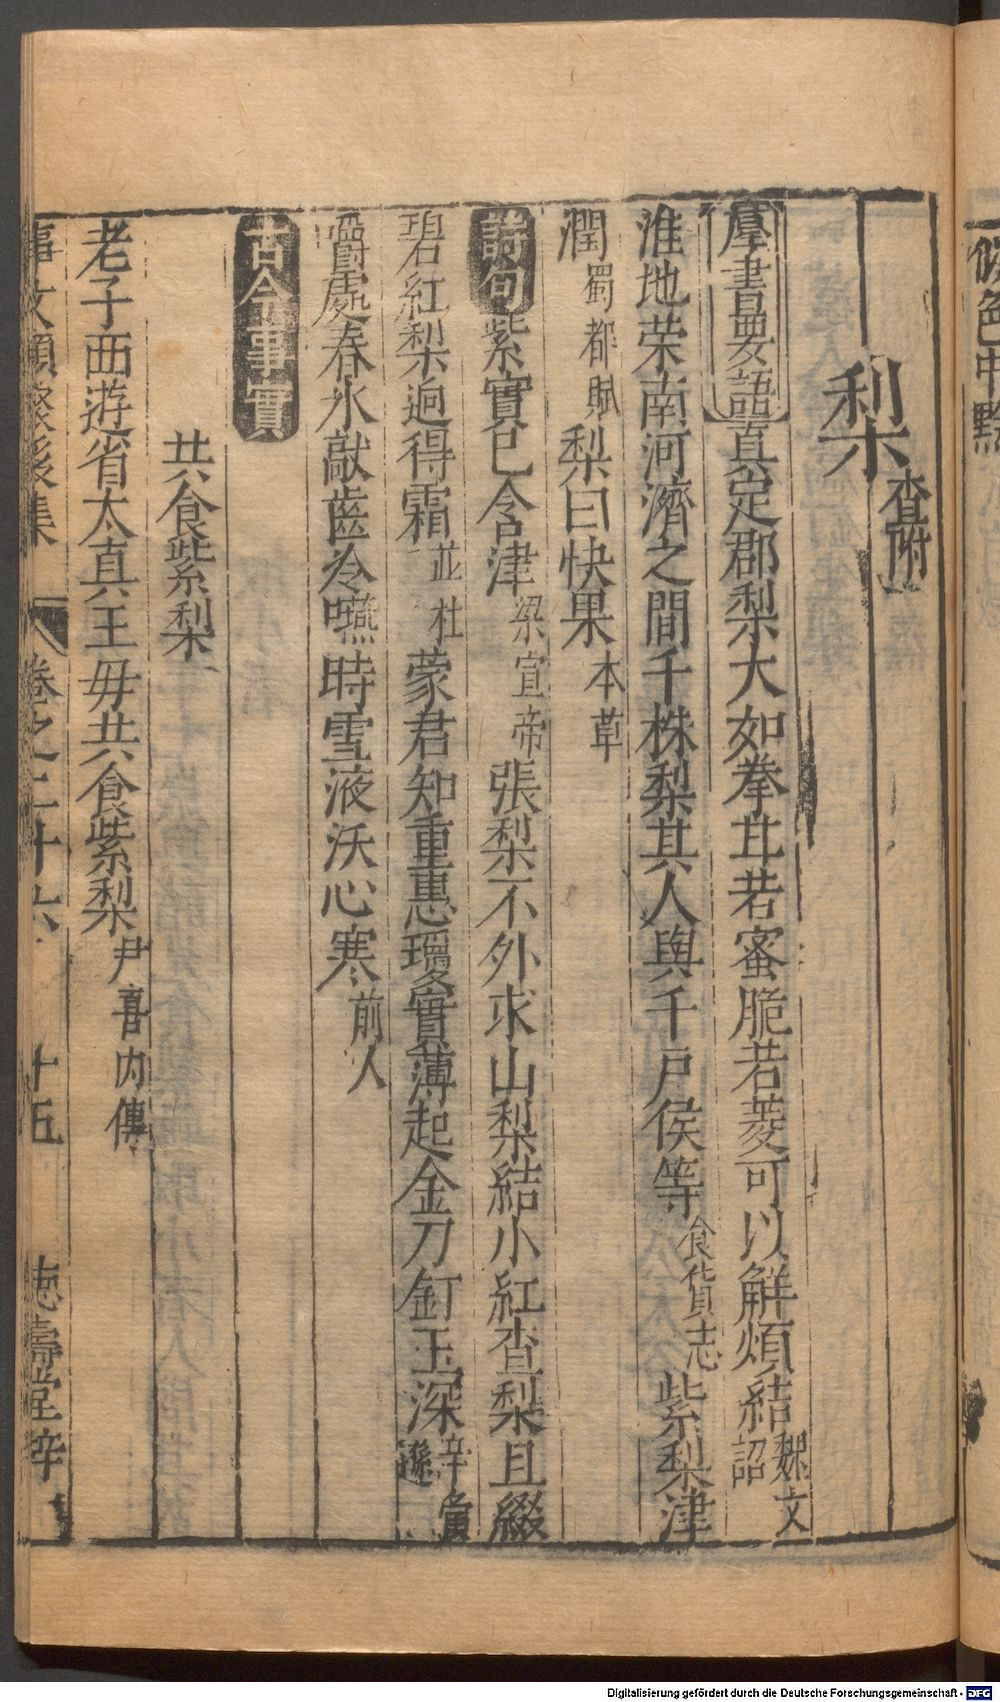 梨 查附
羣書要語真定郡梨大如拳甘若蜜脆若菱可以解煩結魏文詔
淮地荣南河濟之間千株梨其人與千戶侯等食貨志紫梨津
潤蜀都賦梨曰快果本草
詩句紫實已含津梁宣帝張梨不外求山梨結小紅查梨且綴
碧紅梨迥得霜並杜蒙君知重惠瓊實薄起金刀釘玉深辛寅遜
嚼處春氷敲齒冷嚥時雪液沃心寒前人
古今事實
共食紫梨
老子西遊省太真王毋共食紫梨尹喜內傳
事文類聚後集 卷之二十六 十五 德壽堂梓
候色中黙
Digitalisierung gefördert durch die Deutsche Forschungsgemeinschaft - DFG